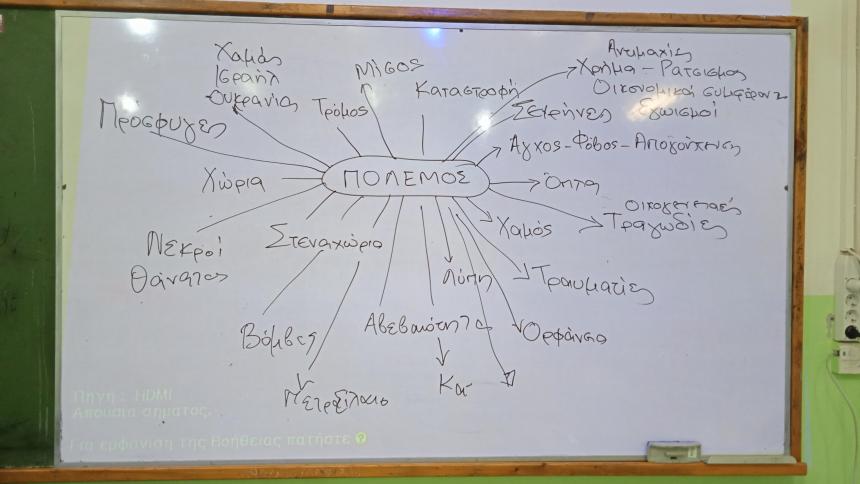 Χαμάς
Ισραήλ
Ουκρανία
Μίσος
Καταστροφή
Ανταμαχίες
Χρήμα - Ρατσισμος
Οικονομικά συμφέροντα
Προσφυγες
Τρόμος
Σειρήνες Εγωισμοί
Άγχος - Φόβος - Απογοήτευση
Χώρια
ΠΟΛΕΜΟΣ
Όπλα
Νεκροί
Θάνατος
Στεναχώρια
Χαμός
οικογενειακές
Τραγωδίες
Λύπη
Τραυματίες
Βόμβες
Αβεβαιότητα
Ορφάνια
Πετρέλαιο
Κα-
Πηγή : HDMI
Απουσία σήματος.
Για εμφάνιση της Βοήθειας πατήστε ?